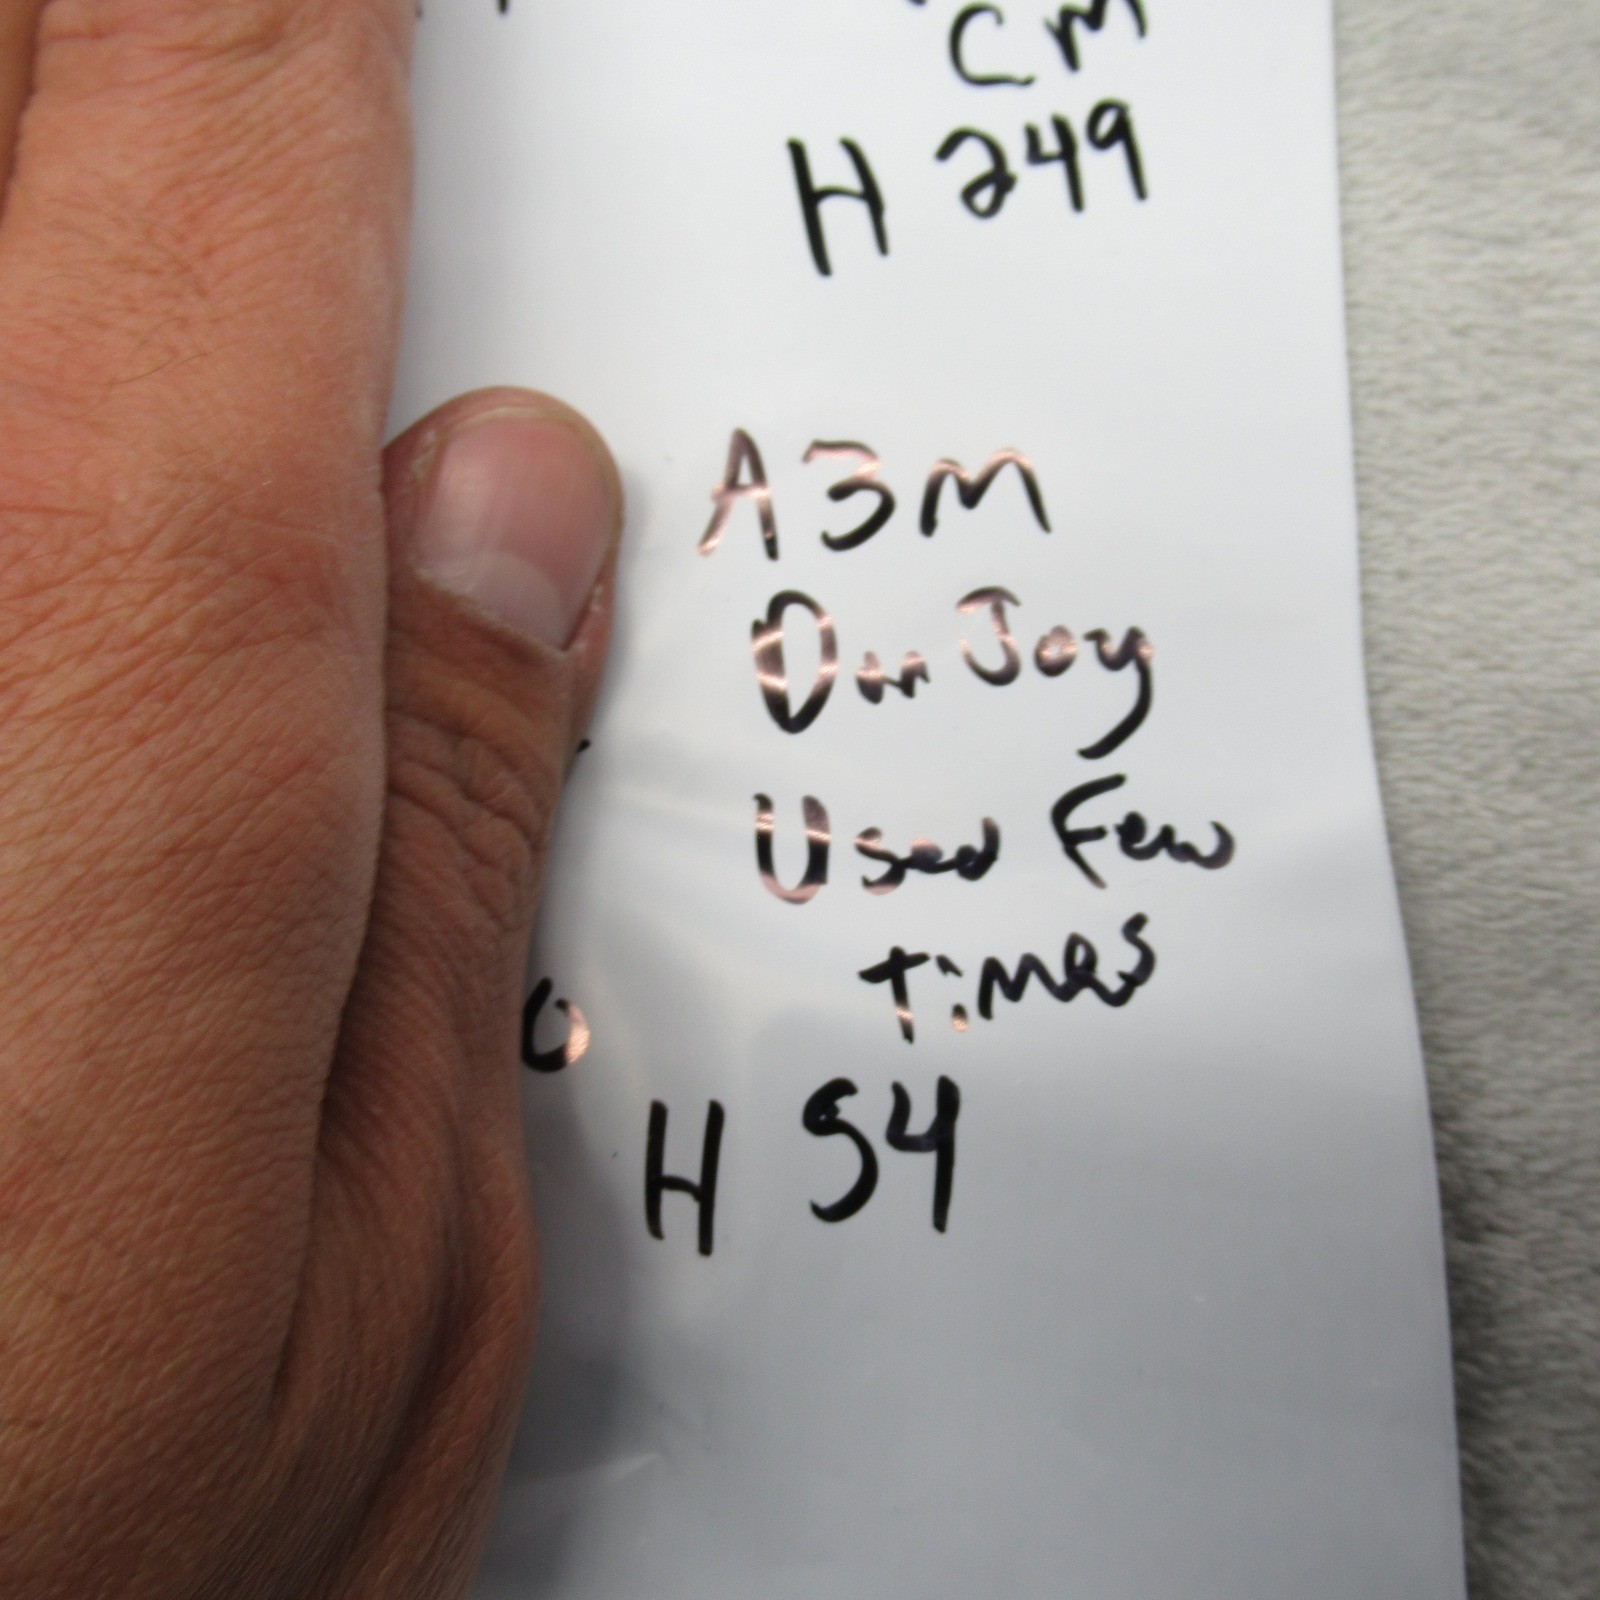 CM
H 249
A3M
DonJoy
Used Few
Times
H 54